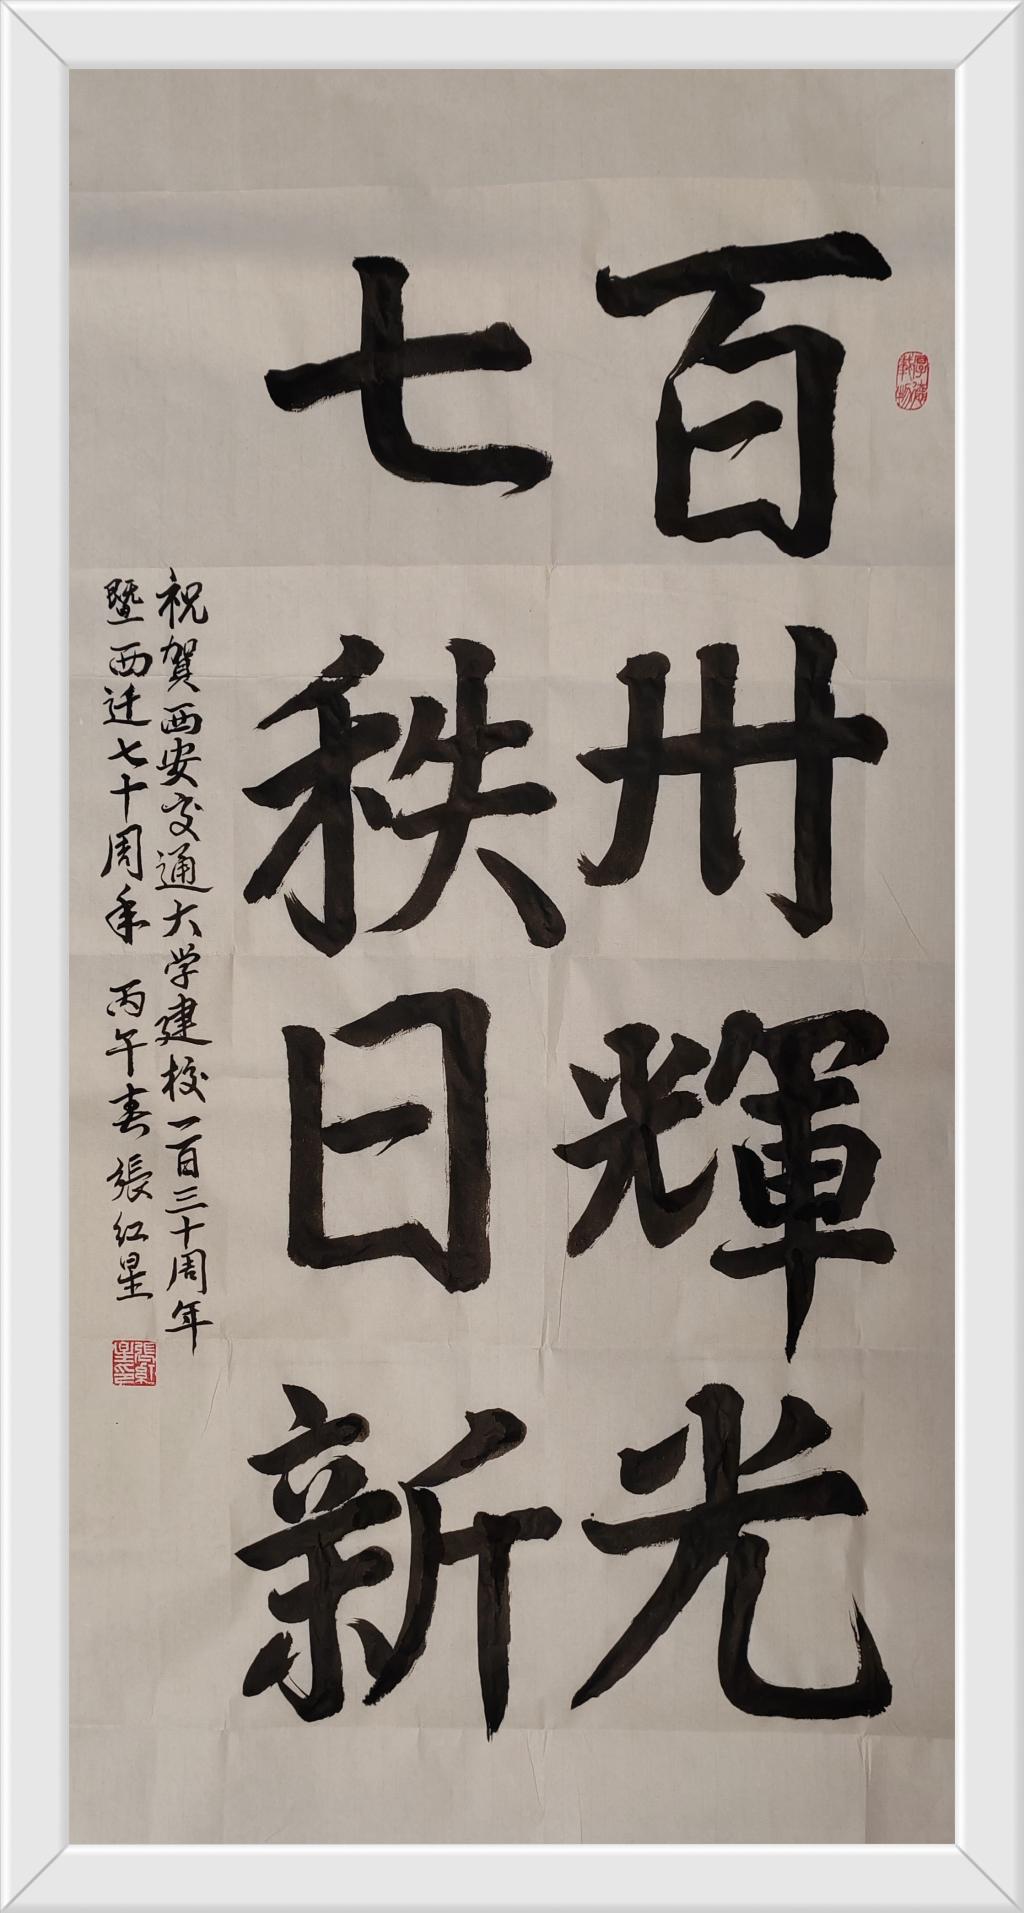 百卅輝光
七秩日新
祝賀西安交通大学建校一百三十周年
暨西迁七十周年 丙午春 張红星
厚德載物
張紅星印